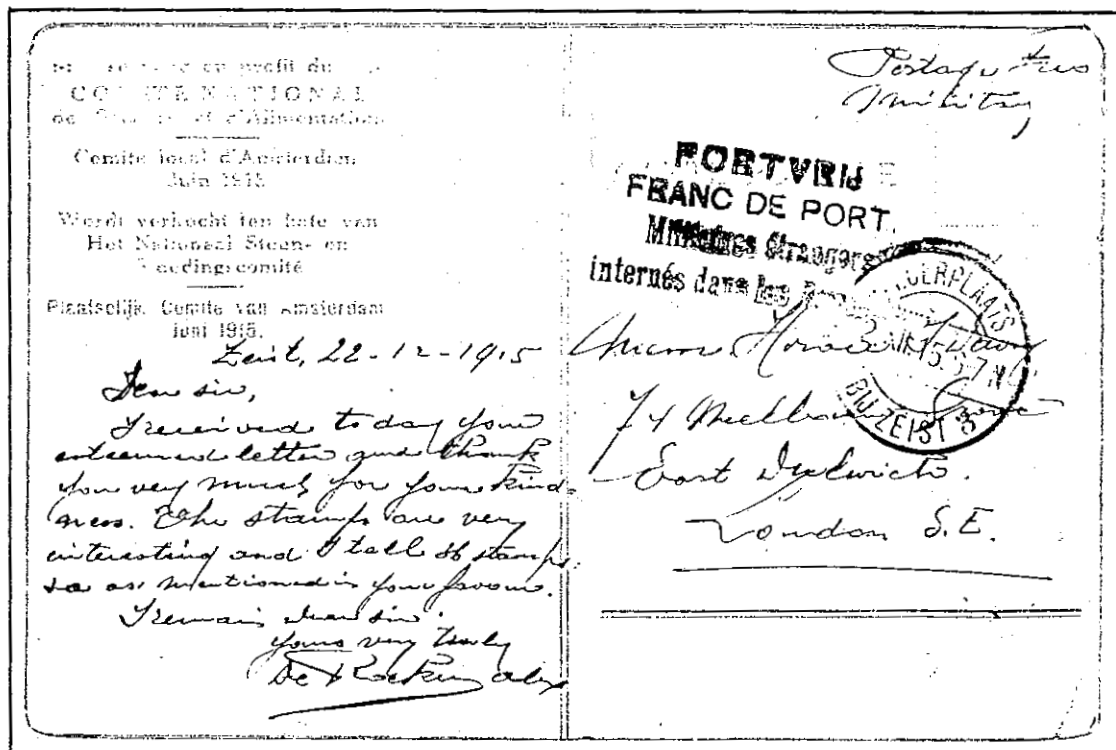 au profit du
COMITE NATIONAL
de et d'Alimentation
Comite local d'Amsterdam
Juin 1915
Wordt verkocht ten bate van
Het Nationaal Steun- en
Voedingscomité
Plaatselijk Comite van Amsterdam
Juni 1915.
Zeist, 22-12-1915
Dear sir,
I received today your
esteemed letter and thank
you very much for your kind-
ness. The stamps are very
interesting and I stamps
as mentioned in your
I remain, dear sir.
yours very truly
De Alex
Postage free
Military
PORTVRIJ
FRANC DE PORT.
Militaires étrangers
internés dans les
INTERNEERPLAATS
BIJ ZEIST 3
74 Melbourne Grove
East Dulwich.
London S.E.